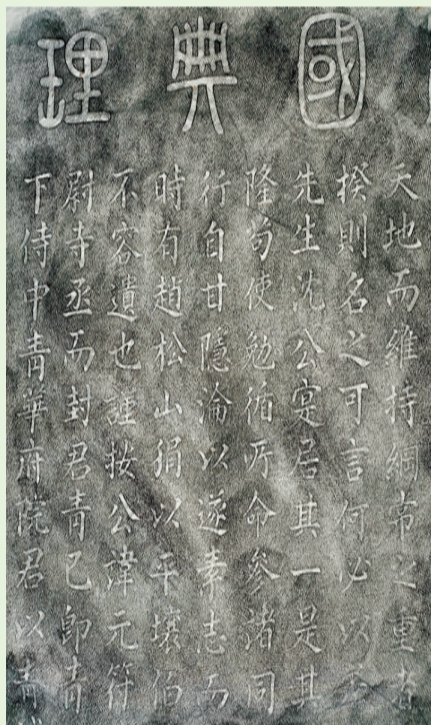 國典理
天地而維持綱常之重者
揆則名之可言何必以
先生沈公寔居其一是其
隆苟使勉循所命參諸同
行自甘隱淪以遂素志而
時有趙松山狷以平壤伯
不容遺也謹按公諱元符
尉寺丞而封君青已卽青
下侍中青華府院君以青